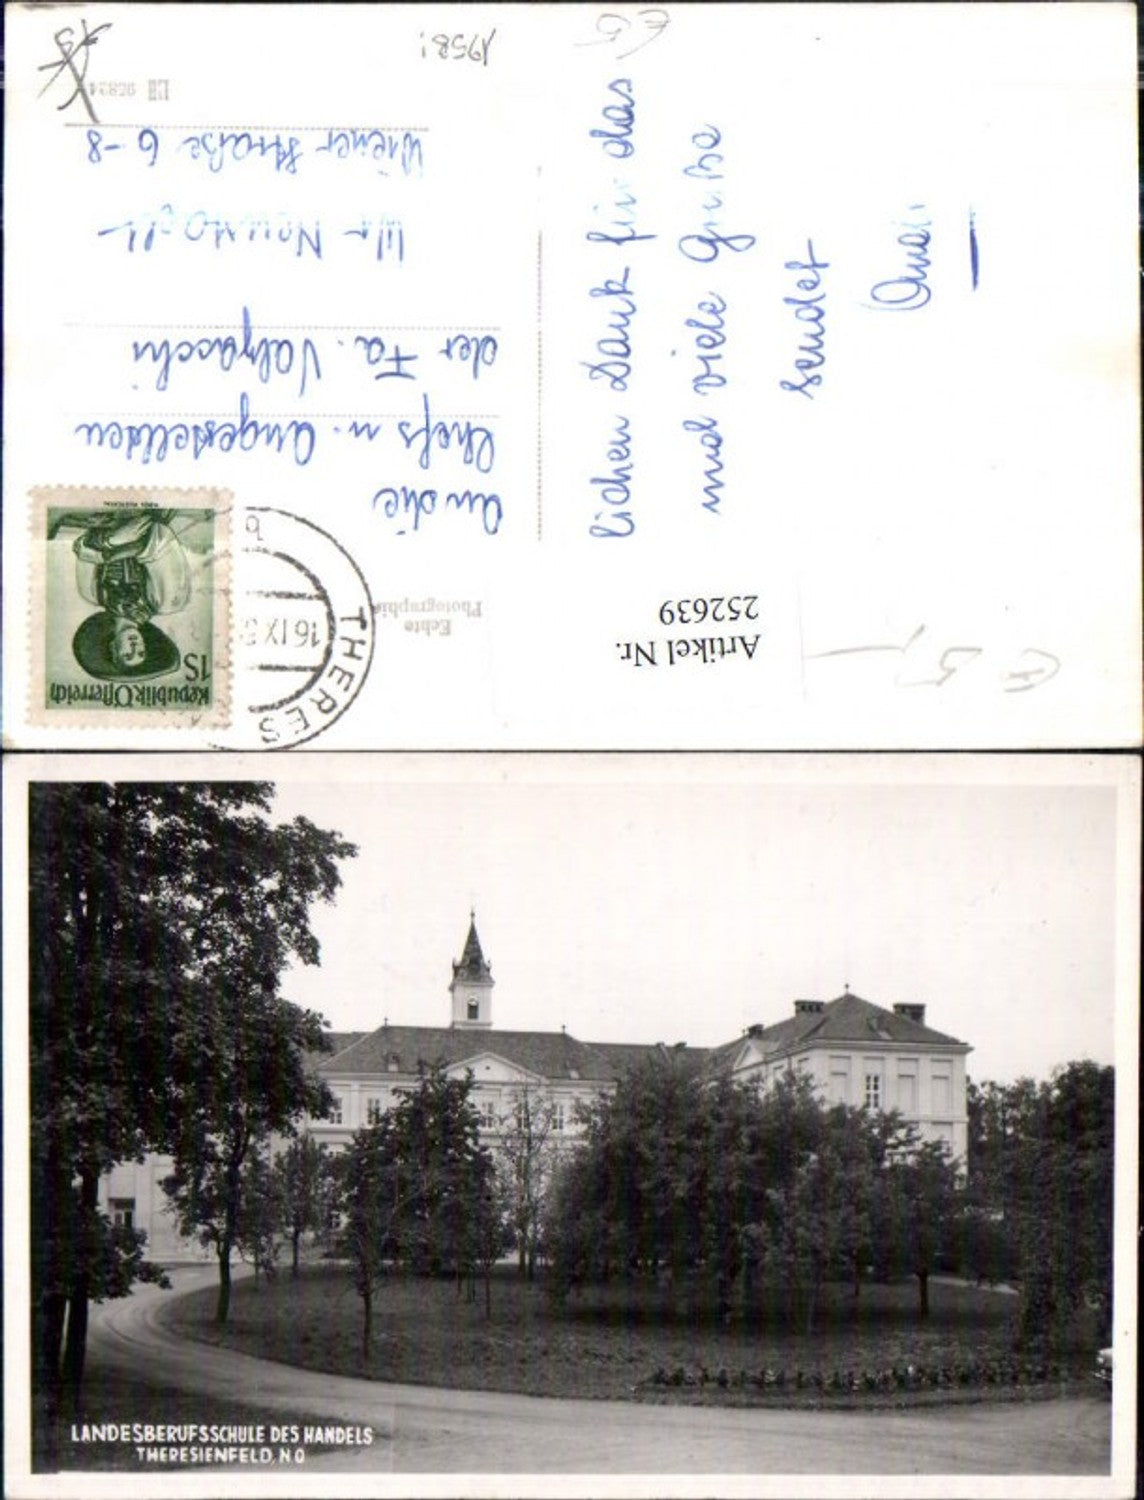 lichen Dank für das
und viele Grüße
sendet
Artikel Nr.
252639
Echte
Photographie
An die
Chefs u. Angestellten
der Fa. Valzacchi
Wr Neustadt
Wiener Straße 6-8
1958!
Republik Österreich
1S
THERES
16 IX 5
b
LANDESBERUFSSCHULE DES HANDELS
THERESIENFELD, N Ö